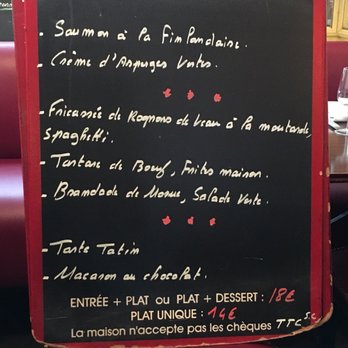 - Saumon à la Finlandaise.
- Crème d'Asperges Vertes.
- Fricassée de Rognons de Veau à la moutarde,
spaghetti.
- Tartare de Boeuf, Frites maison.
- Brandade de Morue, Salade Verte.
- Tarte Tatin
- Macaron au chocolat.
ENTRÉE + PLAT OU PLAT + DESSERT : 18€
PLAT UNIQUE : 14€
La maison n'accepte pas les chèques TTC S.C